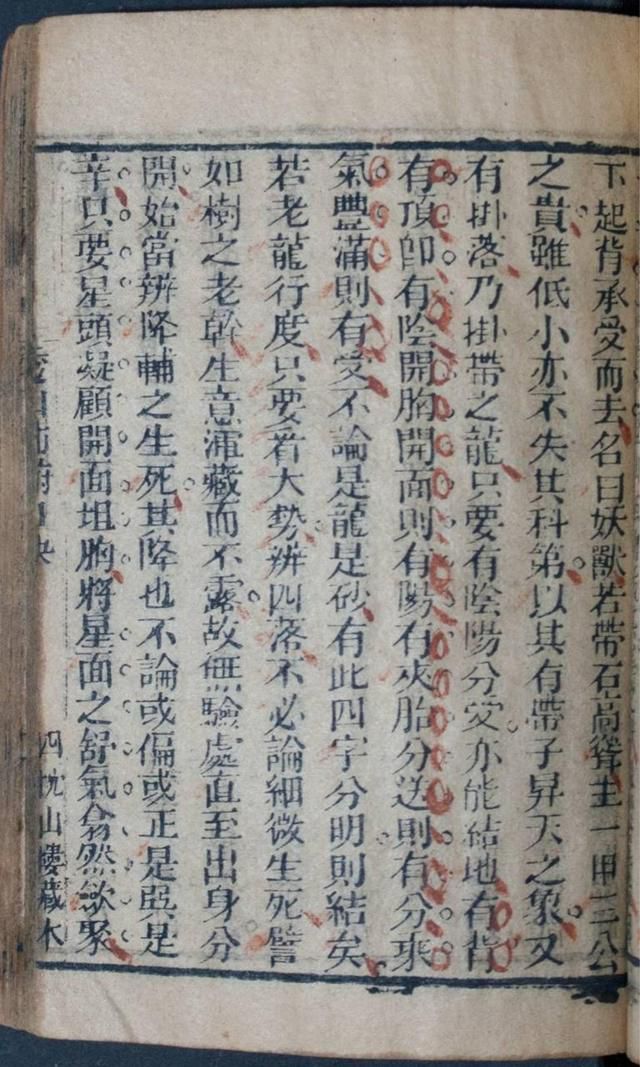 下起背承受而去名曰妖獸若帶石高聳主一甲三公
之貴雖低小亦不失其科第以其有帶子昇天之象又
有掛落乃掛帶之龍只要有陰陽分受亦能結地有背
有頂即有陰開胸開面則有陽有夾胎分送則有分乘
氣豐滿則有受不論是龍是砂有此四字分明則結矣
若老龍行度只要看大勢辨四落不必論細微生死譬
如樹之老幹生意渾藏而不露故無驗處直至出身分
開始當辨降輔之生死其降也不論或偏或正是巽是
辛只要星頭凝顧開面坦胸將星面之舒氣翕然斂聚
四
山樓藏本